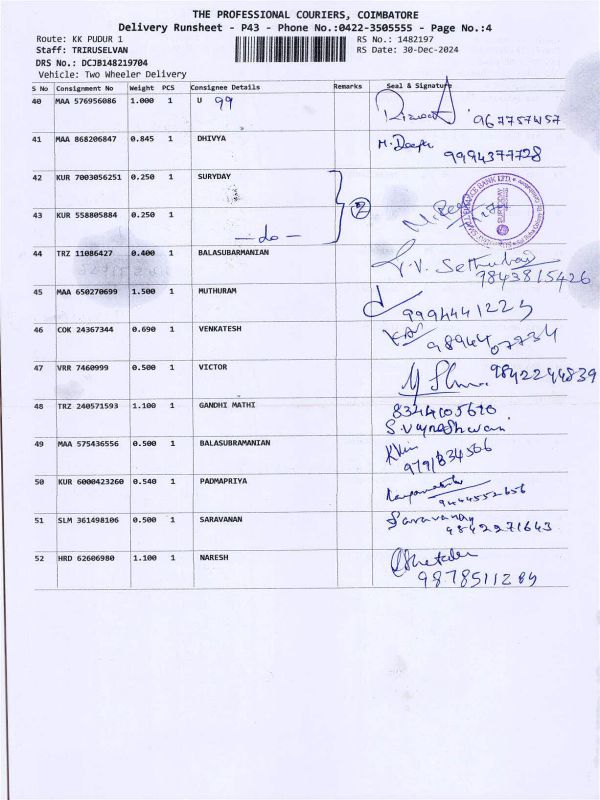 THE PROFESSIONAL COURIERS, COIMBATORE
Delivery Runsheet - P43 - Phone No.:0422-3505555 - Page No.:4
Route: KK PUDUR 1 RS No.: 1482197
Staff: TRIRUSELVAN RS Date: 30-Dec-2024
DRS No.: DCJB148219704
Vehicle: Two Wheeler Delivery
S No Consignment No Weight PCS Consignee Details Remarks Seal & Signature
40 MAA 576956086 1.000 1 U 99
41 MAA 868206847 0.845 1 DHIVYA M. Deepa 9994377728
42 KUR 7003056251 0.250 1 SURYDAY
43 KUR 558805884 0.250 1 — do — 2
44 TRZ 11086427 0.400 1 BALASUBARMANIAN 9843815426
45 MAA 650270699 1.500 1 MUTHURAM 9994441223
46 COK 24367344 0.690 1 VENKATESH 9894407734
47 VRR 7460999 0.500 1 VICTOR 9842244839
48 TRZ 240571593 1.100 1 GANDHI MATHI
49 MAA 575436556 0.500 1 BALASUBRAMANIAN 9791834566
50 KUR 6000423260 0.540 1 PADMAPRIYA 9444552656
51 SLM 361498106 0.500 1 SARAVANAN Saravanan 9842271643
52 HRD 62606980 1.100 1 NARESH